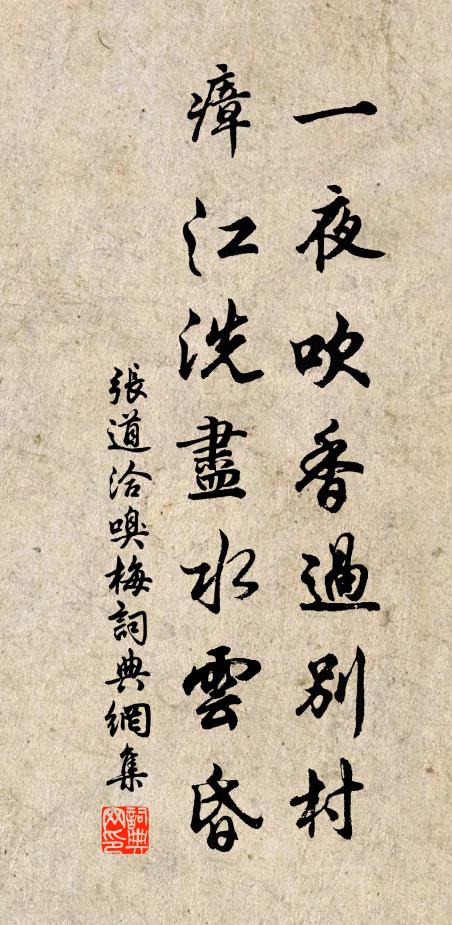 一夜吹香過別村
瘴江洗盡水雲昏
張道洽嗅梅詞典網集
詞典網印